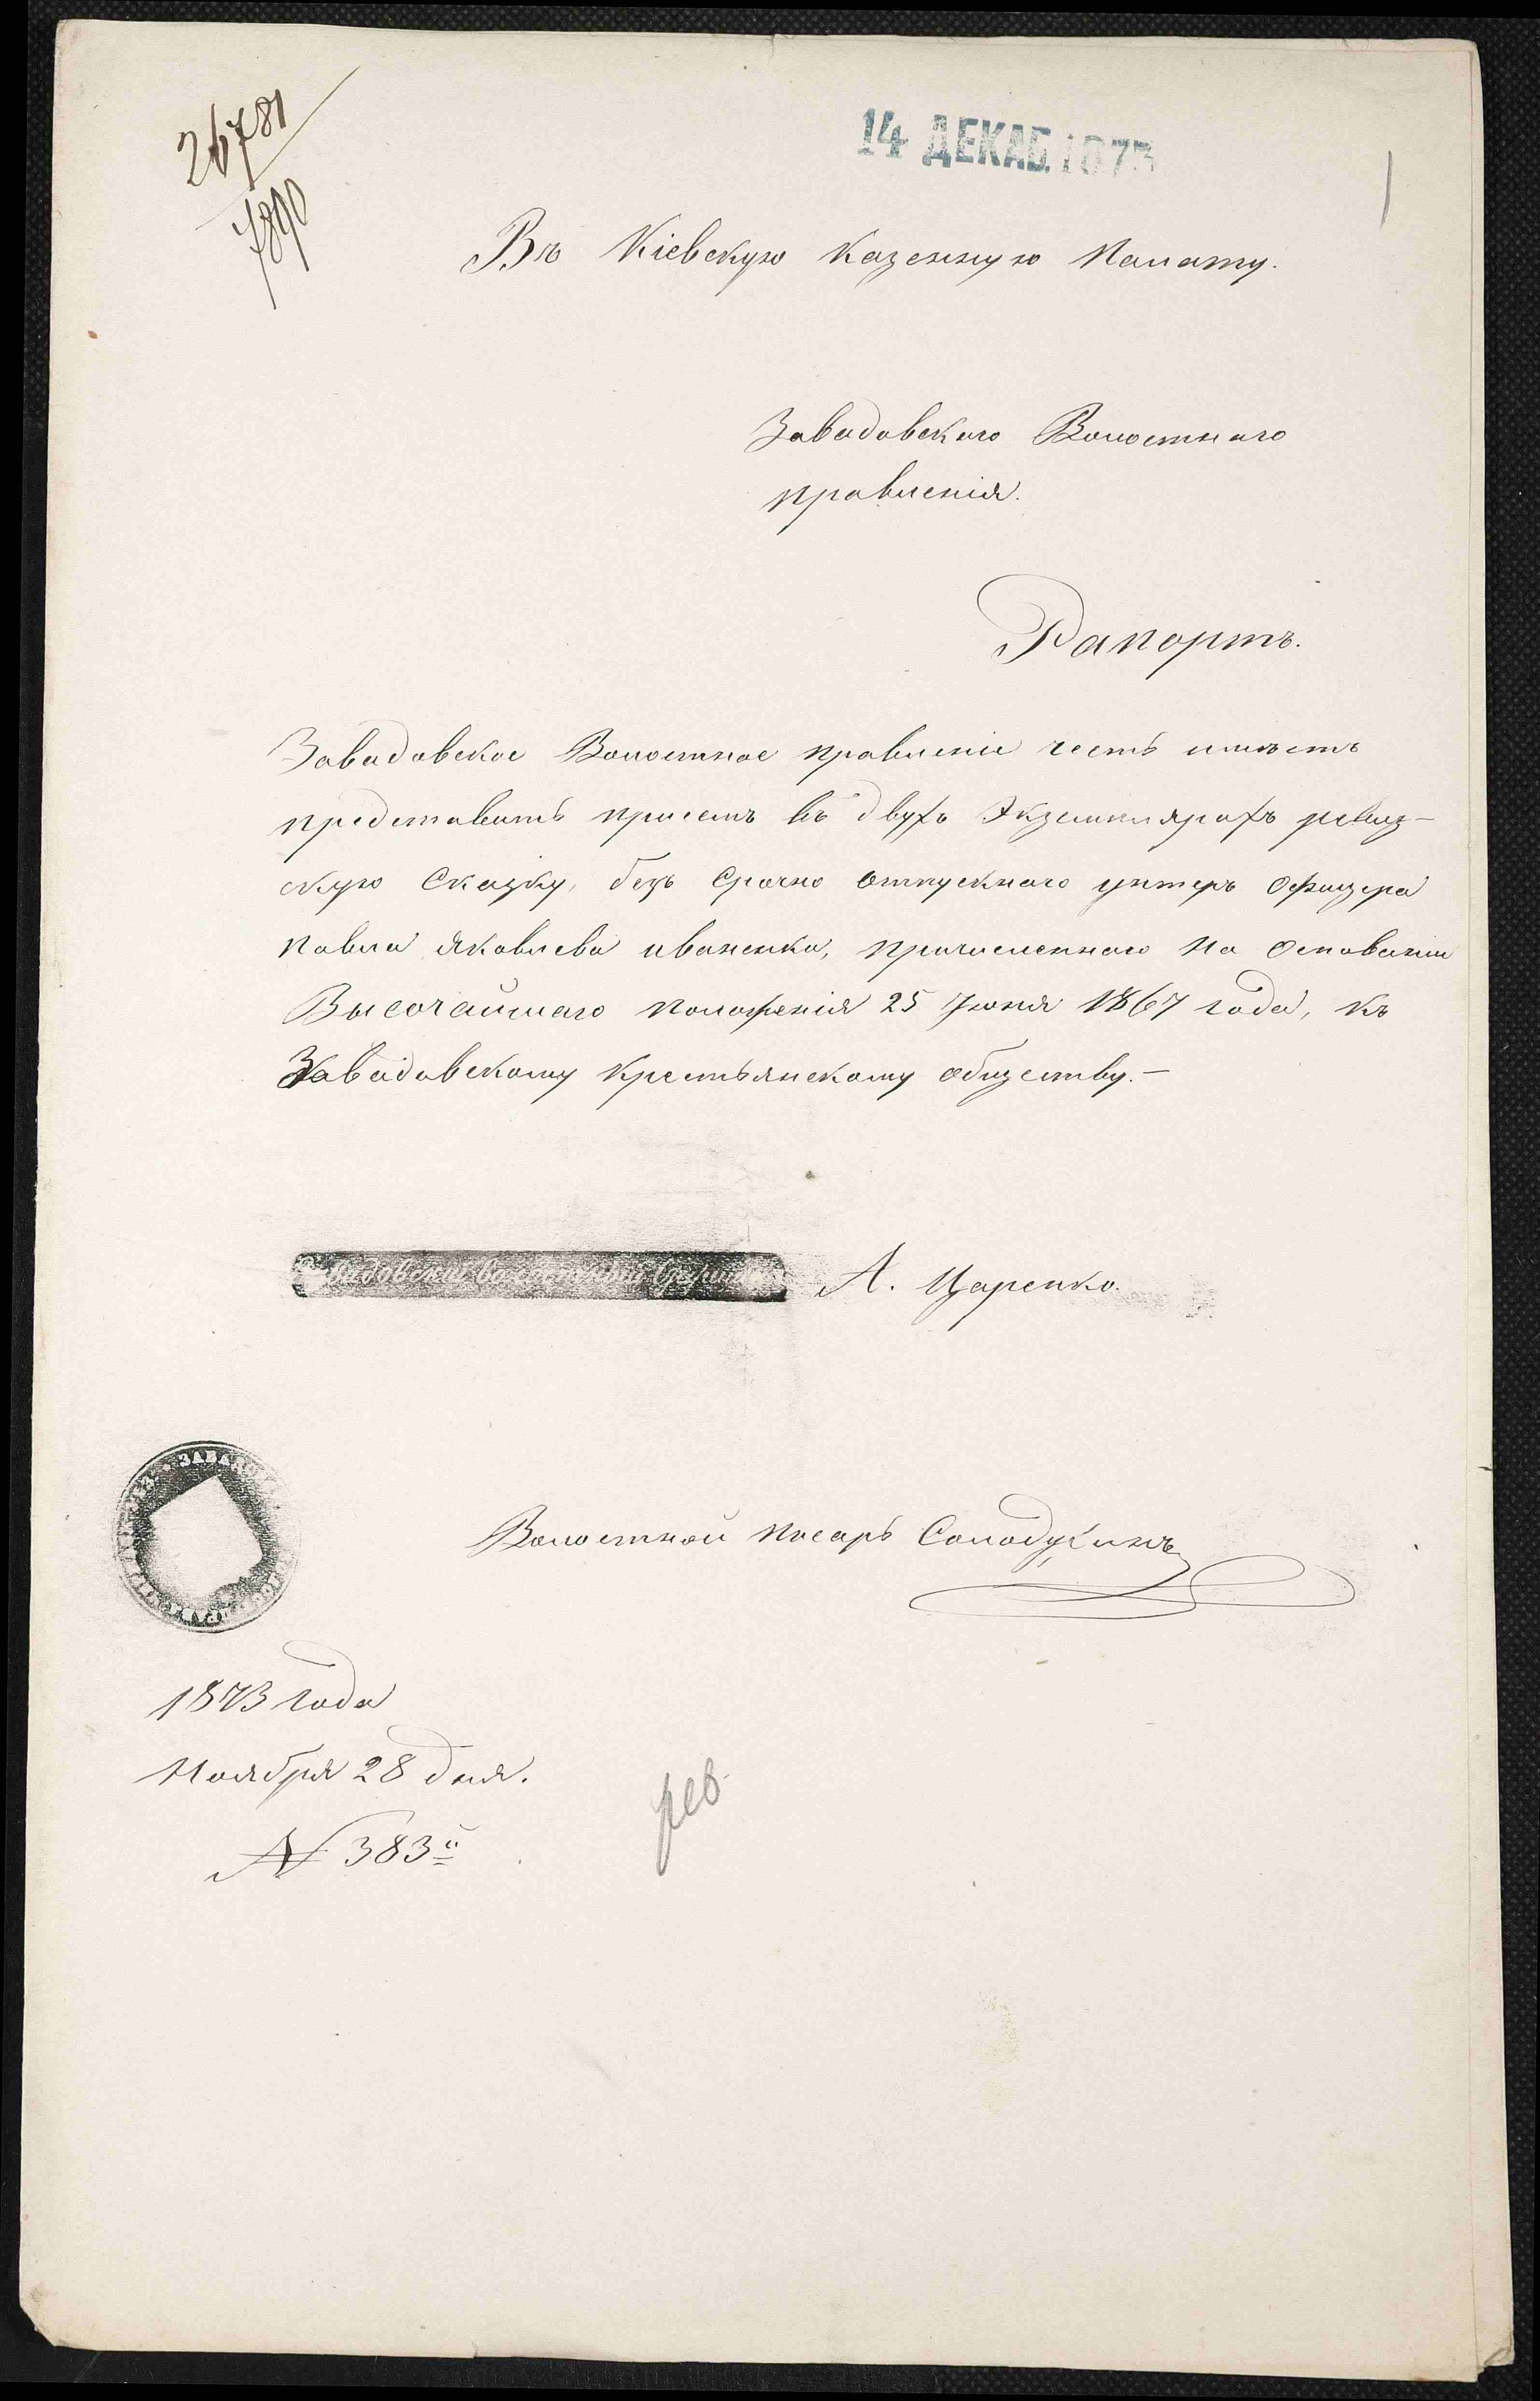 26781
7890
14 ДЕКАБ. 1873
Въ Кіевскую Казенную Палату.
Завадовскаго Волостнаго
правленія.
Рапортъ.
Завадовское Волостное правленіе честь имѣетъ
представить присемъ въ двухъ Экземплярахъ ревиз-
скую Сказку, безъ Срочно отпускнаго унтеръ офицера
Павла Яковлева иваненка, причисленнаго на основаніи
Высочайшаго положенія 25 Іюня 1867 года, къ
Завадовскому крестьянскому обществу.-
Завадовскій волостный Старшина А. Царенко.
ЗАВАДОВ
ПРАВЛ
Волостной писарь Солодухинъ
1873 года
Ноября 28 дня.
№ 383й
рев.